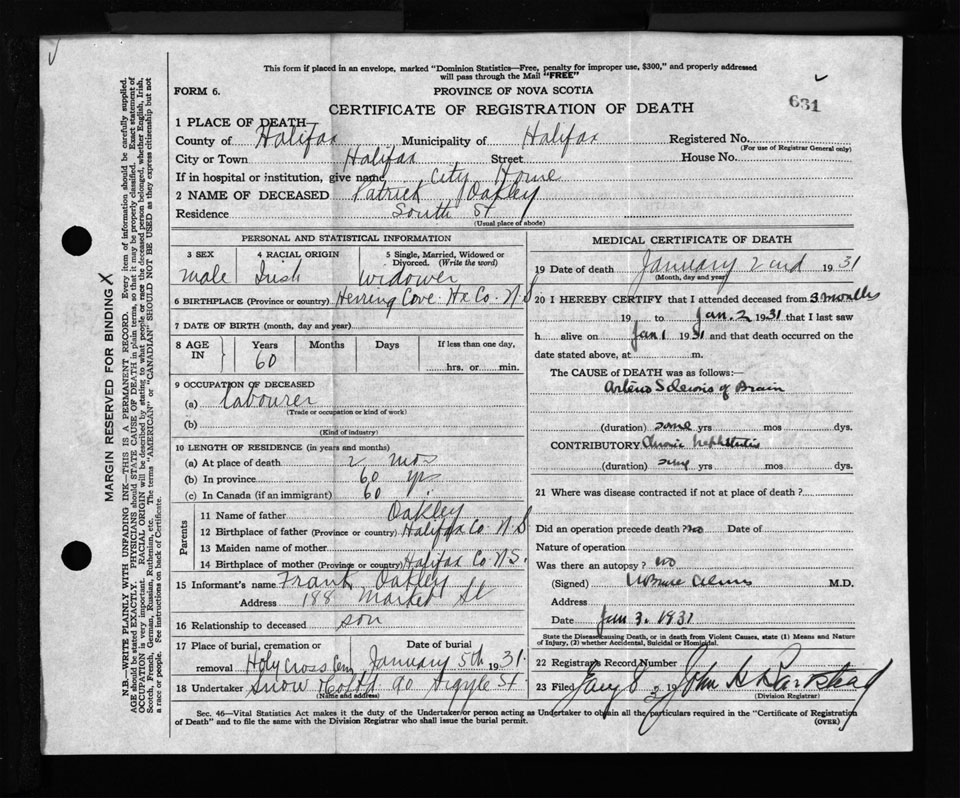 This form if placed in an envelope, marked "Dominion Statistics—Free, penalty for improper use, $300," and properly addressed
will pass through the Mail "FREE"
FORM 6.
PROVINCE OF NOVA SCOTIA
631
CERTIFICATE OF REGISTRATION OF DEATH
1 PLACE OF DEATH
County of Halifax Municipality of Halifax Registered No.
(For use of Registrar General only)
City or Town Halifax Street House No.
If in hospital or institution, give name City Home
2 NAME OF DECEASED Patrick Oakley
Residence South St
(Usual place of abode)
PERSONAL AND STATISTICAL INFORMATION
3 SEX 4 RACIAL ORIGIN 5 Single, Married, Widowed or
Divorced. (Write the word)
male Irish widower
6 BIRTHPLACE (Province or country) Herring Cove Hx Co. N.S
7 DATE OF BIRTH (month, day and year)
8 AGE IN Years Months Days If less than one day,
60 hrs. or min.
9 OCCUPATION OF DECEASED
(a) Labourer
(Trade or occupation or kind of work)
(b)
(Kind of industry)
10 LENGTH OF RESIDENCE (in years and months)
(a) At place of death 2 mos
(b) In province 60 yrs
(c) In Canada (if an immigrant) 60
Parents
11 Name of father Oakley
12 Birthplace of father (Province or country) Halifax Co N.S
13 Maiden name of mother
14 Birthplace of mother (Province or country) Halifax Co N.S.
15 Informant's name Frank Oakley
Address 188 Market St
16 Relationship to deceased son
17 Place of burial, cremation or Date of burial
removal Holy Cross Cem January 5th 1931.
18 Undertaker Snow & Co Ltd 90 Argyle St
(Name and address)
MEDICAL CERTIFICATE OF DEATH
19 Date of death January 2nd 1931
(Month, day and year)
20 I HEREBY CERTIFY that I attended deceased from 3 months
19 to Jan. 2 1931 that I last saw
h alive on Jan 1 1931 and that death occurred on the
date stated above, at m.
The CAUSE of DEATH was as follows:
Arterio Sclerosis of Brain
(duration) some yrs mos dys.
CONTRIBUTORY Chronic Nephritis
(duration) some yrs mos dys.
21 Where was disease contracted if not at place of death?
Did an operation precede death? no Date of
Nature of operation
Was there an autopsy? no
(Signed) M.D.
Address
Date Jan 3. 1931
State the Disease causing Death, or in death from Violent Causes, state (1) Means and Nature
of Injury, (2) whether Accidental, Suicidal or Homicidal.
22 Registrars Record Number
23 Filed Jany 8 19 John A
(Division Registrar)
Sec. 46—Vital Statistics Act makes it the duty of the Undertaker or person acting as Undertaker to obtain all the particulars required in the "Certificate of Registration
of Death" and to file the same with the Division Registrar who shall issue the burial permit.
(OVER)
MARGIN RESERVED FOR BINDING X
N.B.—WRITE PLAINLY WITH UNFADING INK—THIS IS A PERMANENT RECORD. Every item of information should be carefully supplied.
AGE should be stated EXACTLY. PHYSICIANS should STATE CAUSE OF DEATH in plain terms, so that it may be properly classified. Exact statement of
OCCUPATION is very important. RACIAL ORIGIN will be described by stating to what people or race the deceased person belonged, whether English, Irish,
Scotch, French, German, Russian, Ruthenian, etc. The terms "AMERICAN" or "CANADIAN" SHOULD NOT BE USED as they express citizenship but not
a race or people. See instructions on back of Certificate.